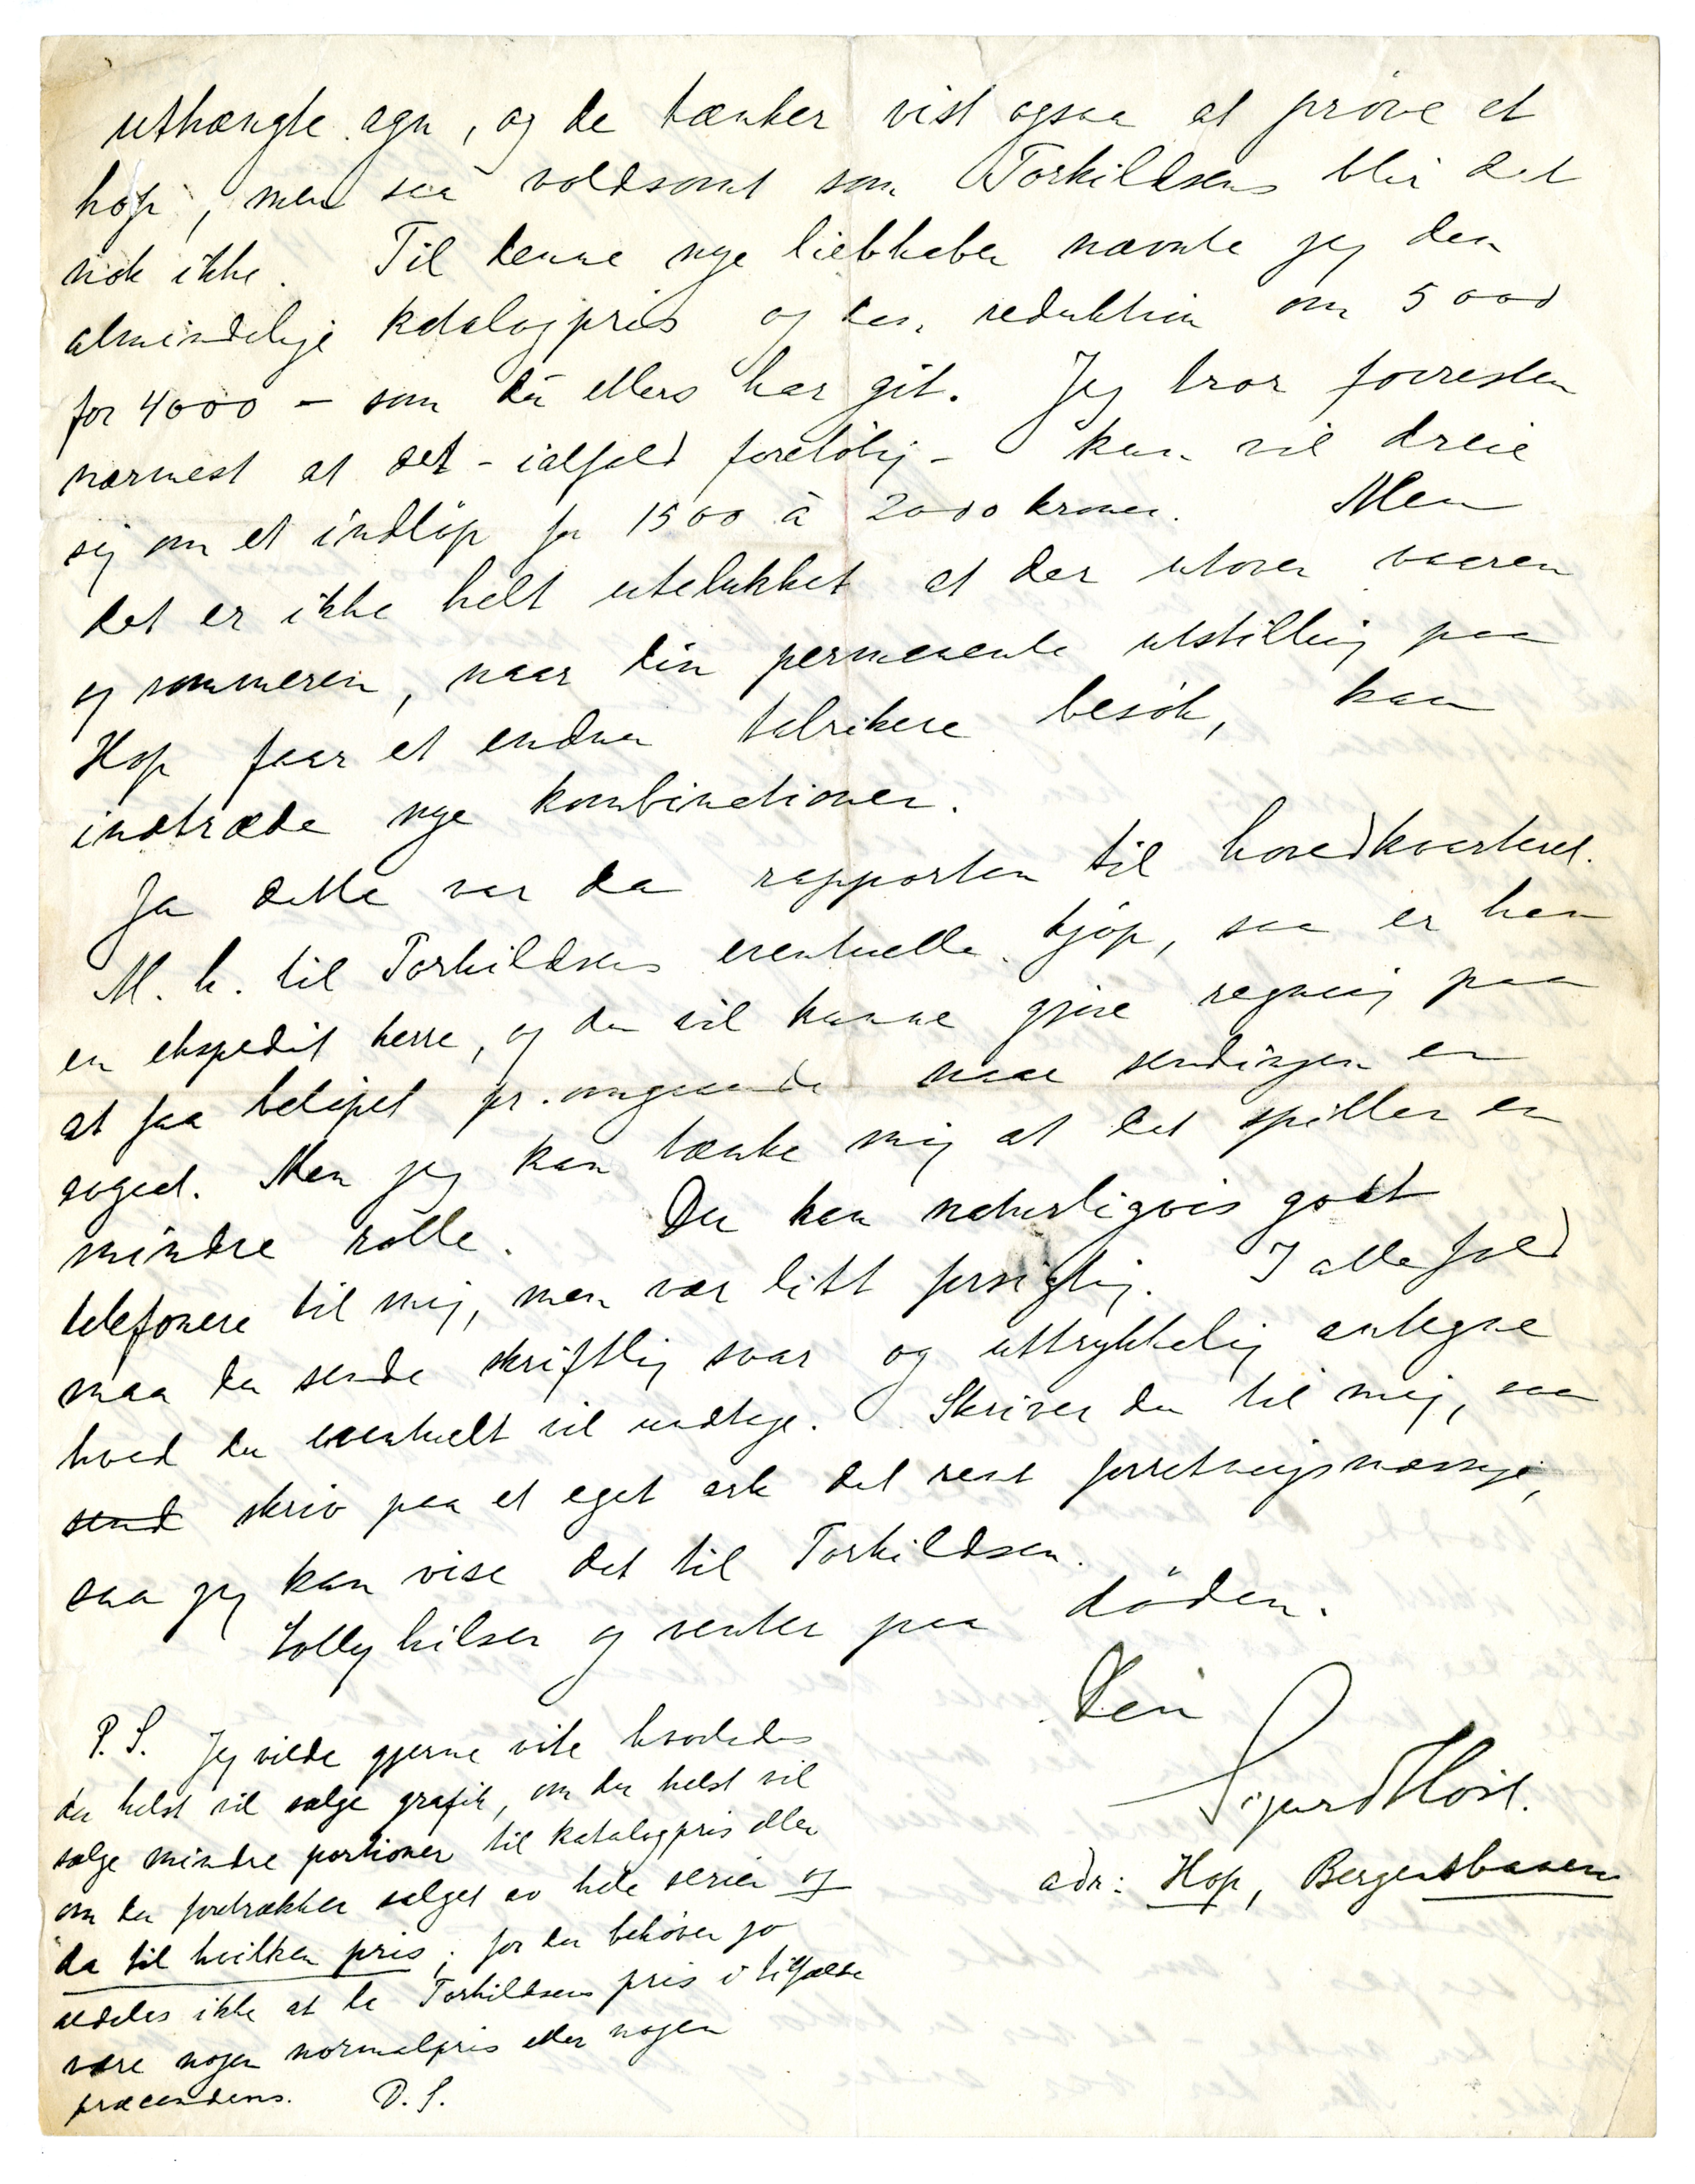 uthængte agn, og de tænker vist ogsaa at prøve et
hop, men saa voldsomt som Torkildsens blir det
nok ikke. Til denne nye liebhaber nævnte jeg den
almindelige katalogpris og den reduktion om 5000
for 4000 – som du ellers har git. Jeg tror forresten
nærmest at det – ialfald foreløbig – kun vil dreie
sig om et indkjøp for 1500 à 2000 kroner. Men
det er ikke helt utelukket at der utover vaaren
og sommeren, naar din permanente utstilling paa
Hop faar et endnu talrikere besøk, kan
indtræde nye kombinationer.
Ja dette var da rapporten til hovedkvarteret.
M. h. til Torkildsens eventuelle kjøp, saa er han
en ekspedit herre, og du vil kunne gjøre regning paa
at faa beløpet pr. omgaaende naar sendingen er
avgaat. Men jeg kan tænke mig at det spiller en
mindre rolle. Du kan naturligvis godt
telefonere til mig, men vær litt forsigtig. I alle fald
maa du sende skriftlig svar og uttrykkelig antegne
hvad du eventuelt vil undtage. Skriver du til mig, saa
send skriv paa et eget ark det rent forretningsmæssige,
saa jeg kan vise det til Torkildsen.
Lolly hilser og venter paa døden.
Din
Sigurd Høst.
adr: Hop, Bergensbanen
P. S. Jeg vilde gjerne vite hvorledes
du helst vil sælge grafik, om du helst vil
sælge mindre portioner til katalogpris eller
om du foretrækker salget av hele serien og
da til hvilken pris; for du behøver jo
aldeles ikke at la Torkildsens pris i tilfælde
være nogen normalpris eller nogen
præcendens. D. S.